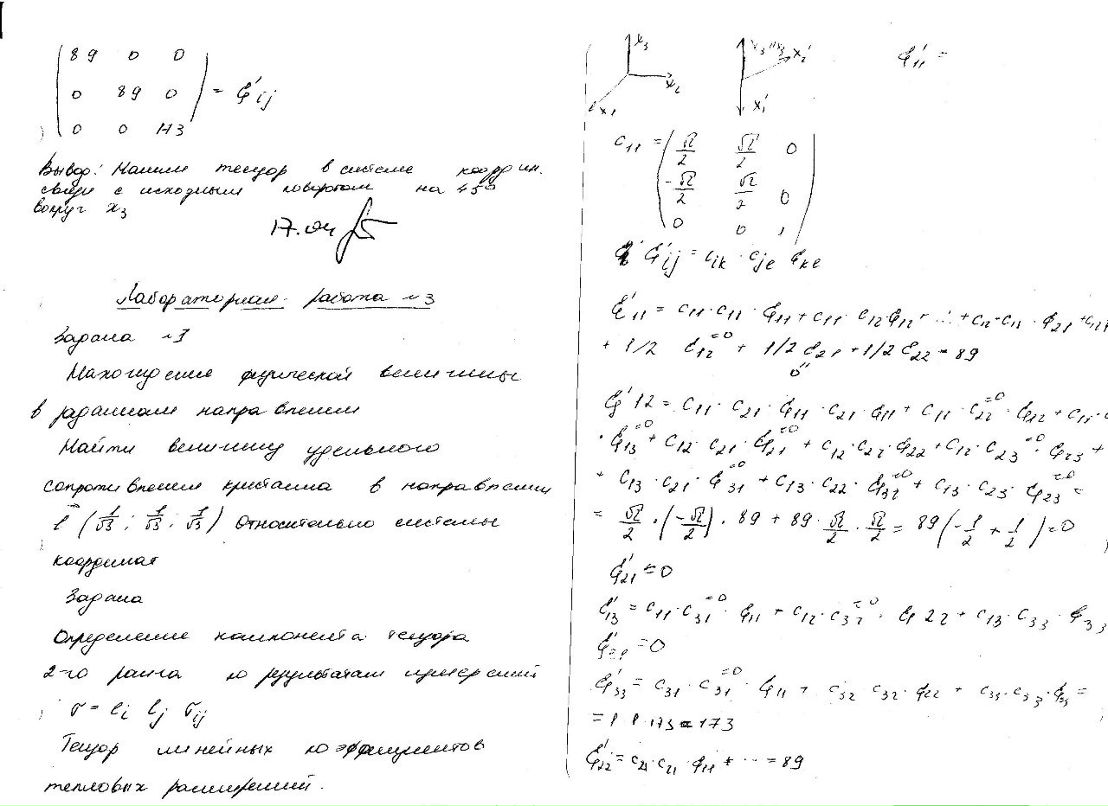 89 0 0
0 89 0 = ε'ij
0 0 173
Вывод: Нашли тензор в системе координ.
связи с исходным поворотом на 45°
вокруг x3
17.04
Лабораторная работа ~3
Задача ~1
Нахождение физической величины
в заданном направлении
Найти величину удельного
сопротивления кристалла в направлении
l (1/√3; 1/√3; 1/√3) относительно системы
координат
Задача
Определение компонента тензора
2-го ранга по результатам измерений
σ = li lj σij
Тензор линейных коэффициентов
тепловых расширений.
x3 x2 x1
x3'' x3 x2' x1'
ε'11 =
c11 = √2/2 √2/2 0
-√2/2 √2/2 0
0 0 1
ε'ij = cik · cje εke
ε'11 = c11 · c11 · ε11 + c11 · c12 · ε12 + ... + c12 · c11 · ε21 + c12
+ 1/2 ε12 =0 + 1/2 ε21 + 1/2 ε22 = 89
0"
ε'12 = c11 · c21 · ε11 · c21 · ε11 + c11 · c22 =0 · ε22 + c11 · c
· ε13 =0 + c12 · c21 · ε21 =0 + c12 · c22 · ε22 + c12 · c23 =0 · ε23 +
+ c13 · c21 · ε31 =0 + c13 · c22 · ε32 =0 + c13 · c23 · ε23 =0 =
= √2/2 · (-√2/2) · 89 + 89 · √2/2 · √2/2 = 89 (-1/2 + 1/2) = 0
ε'21 = 0
ε'13 = c11 · c31 =0 · ε11 + c12 · c32 =0 · ε22 + c13 · c33 · ε33
= 0
ε'33 = c31 · c31 =0 · ε11 + c32 c32 · ε22 + c33 · c33 · ε33 =
= 1 1 173 = 173
ε'22 = c21 · c21 ε11 + ... = 89